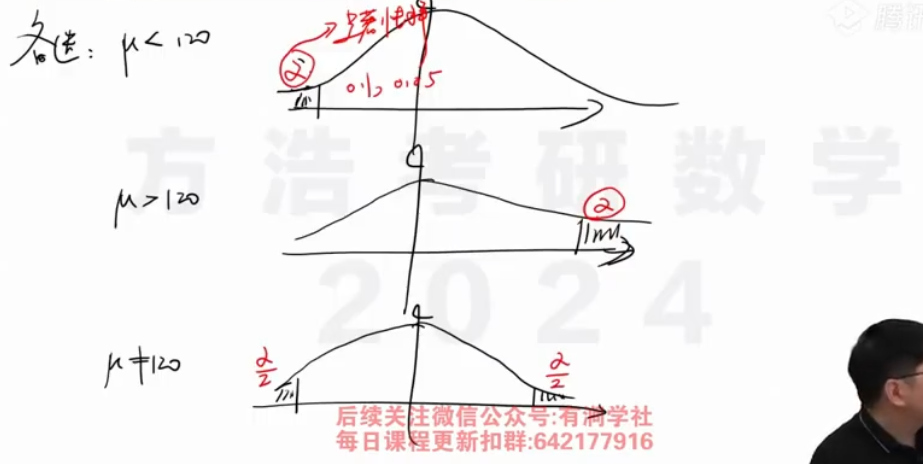 备选: μ < 120
α → 显著性水平
0.1, 0.05
μ > 120
α
μ ≠ 120
α/2
α/2
方浩考研数学
2024
腾讯
后续关注微信公众号:有渦学社
每日课程更新扣群:642177916